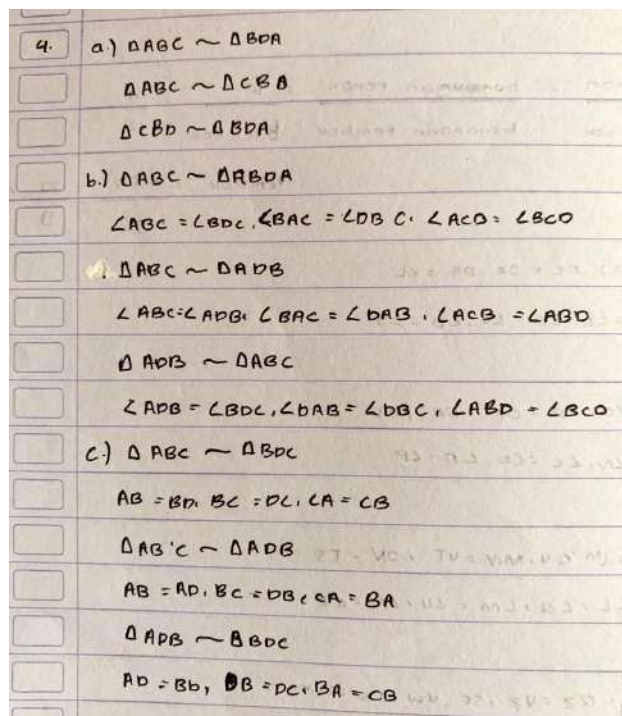 4. a.) ΔABC ~ ΔBDA
ΔABC ~ ΔCBD
ΔCBD ~ ΔBDA
b.) ΔABC ~ ΔRBDA
∠ABC = ∠BDC, ∠BAC = ∠DBC, ∠ACD = ∠BCD
ΔABC ~ ΔADB
∠ABC = ∠ADB, ∠BAC = ∠DAB, ∠ACB = ∠ABD
ΔADB ~ ΔABC
∠ADB = ∠BDC, ∠DAB = ∠DBC, ∠ABD = ∠BCD
C.) ΔABC ~ ΔBDC
AB = BD, BC = DC, CA = CB
ΔAB'C ~ ΔADB
AB = AD, BC = DB, CA = BA
ΔADB ~ BBDC
AD = Bb, DB = DC, BA = CB